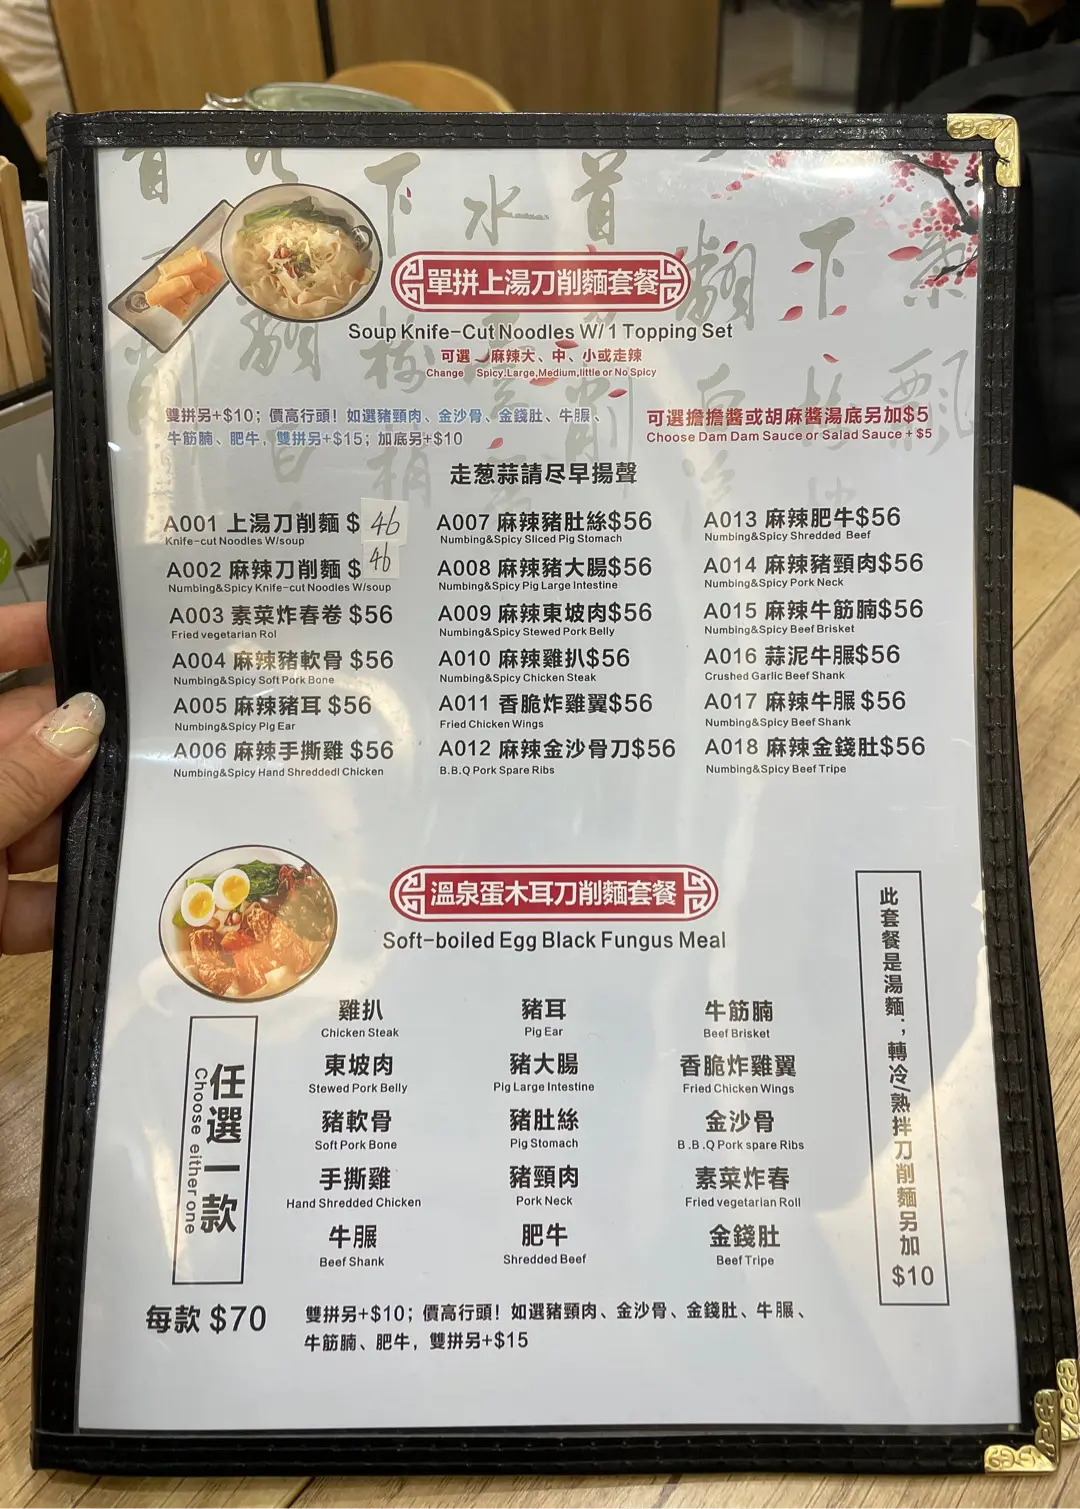 單拼上湯刀削麵套餐
Soup Knife-Cut Noodles W/1 Topping Set
可選 麻辣大、中、小或走辣
Change Spicy:Large,Medium,little or No Spicy
雙拼另+$10；價高行頭！如選豬頸肉、金沙骨、金錢肚、牛𦟌、
牛筋腩、肥牛，雙拼另+$15；加底另+$10
可選擔擔醬或胡麻醬湯底另加$5
Choose Dam Dam Sauce or Salad Sauce + $5
走葱蒜請尽早揚聲
A001 上湯刀削麵 $ 46
Knife-cut Noodles W/soup
A002 麻辣刀削麵 $ 46
Numbing&Spicy Knife-cut Noodles W/soup
A003 素菜炸春卷 $56
Fried vegetarian Rol
A004 麻辣豬軟骨 $56
Numbing&Spicy Soft Pork Bone
A005 麻辣豬耳 $56
Numbing&Spicy Pig Ear
A006 麻辣手撕雞 $56
Numbing&Spicy Hand Shreddedl Chicken
A007 麻辣豬肚絲$56
Numbing&Spicy Sliced Pig Stomach
A008 麻辣豬大腸$56
Numbing&Spicy Pig Large Intestine
A009 麻辣東坡肉$56
Numbing&Spicy Stewed Pork Belly
A010 麻辣雞扒$56
Numbing&Spicy Chicken Steak
A011 香脆炸雞翼$56
Fried Chicken Wings
A012 麻辣金沙骨刀$56
B.B.Q Pork Spare Ribs
A013 麻辣肥牛$56
Numbing&Spicy Shredded Beef
A014 麻辣豬頸肉$56
Numbing&Spicy Pork Neck
A015 麻辣牛筋腩$56
Numbing&Spicy Beef Brisket
A016 蒜泥牛𦟌$56
Crushed Garlic Beef Shank
A017 麻辣牛𦟌 $56
Numbing&Spicy Beef Shank
A018 麻辣金錢肚$56
Numbing&Spicy Beef Tripe
溫泉蛋木耳刀削麵套餐
Soft-boiled Egg Black Fungus Meal
任選一款
Choose either one
雞扒
Chicken Steak
豬耳
Pig Ear
牛筋腩
Beef Brisket
東坡肉
Stewed Pork Belly
豬大腸
Pig Large Intestine
香脆炸雞翼
Fried Chicken Wings
豬軟骨
Soft Pork Bone
豬肚絲
Pig Stomach
金沙骨
B.B.Q Pork spare Ribs
手撕雞
Hand Shredded Chicken
豬頸肉
Pork Neck
素菜炸春
Fried vegetarian Roll
牛𦟌
Beef Shank
肥牛
Shredded Beef
金錢肚
Beef Tripe
此套餐是湯麵；轉冷/熟拌刀削麵另加
$10
每款 $70
雙拼另+$10；價高行頭！如選豬頸肉、金沙骨、金錢肚、牛𦟌、
牛筋腩、肥牛，雙拼另+$15